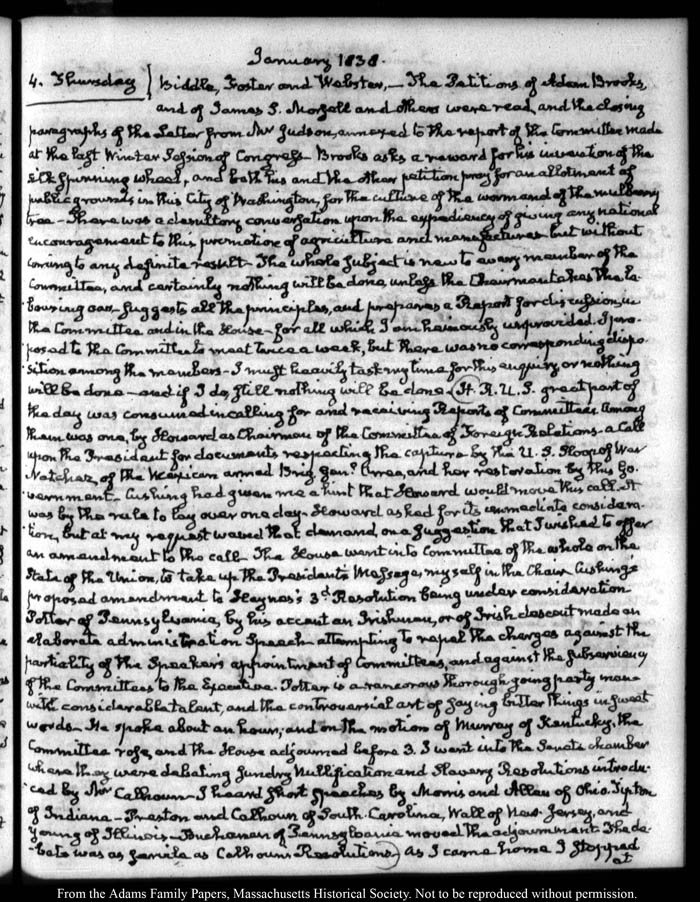 January 1838.
4. Thursday } Biddle, Foster and Webster,— The Petitions of Adam Brooks,
and of James S. and others were read, and the closing
paragraphs of the Letter from Mr Judson, annexed to the report of the Committee made
at the last Winter Session of Congress— Brooks asks a reward for his invention of the
silk spinning wheel, and both his and the other petition pray for an allotment of
public grounds in this City of Washington, for the culture of the worm and of the mulberry
tree— There was a desultory conversation upon the expediency of giving any national
encouragement to this promotion of agriculture and manufactures but without
coming to any definite result— The whole subject is new to every member of the
Committee, and certainly nothing will be done, unless the Chairman takes the la-
bouring oar— suggests all the principles, and prepares a Report for discussion, in
the Committee and in the House— for all which I am heinously unprovided. I pro-
posed to the Committee to meet twice a week, but there was no corresponding dispo-
sition among the members— I must heavily task my time for this enquiry, or nothing
will be done— and if I do, still nothing will be done— H. R. U. S. great part of
the day was consumed in calling for and receiving Reports of Committees. Among
them was one, by Howard as Chairman of the Committee of Foreign Relations— a Call
upon the President for documents respecting the capture by the U. S. Sloop of War
Natchez, of the Mexican armed Brig, Genl Urrea, and her restoration by this Go-
vernment— Cushing had given me a hint that Howard would move this call. It
was by the rule to lay over one day— Howard asked for its immediate considera-
tion, but at my request waved that demand, on a suggestion that I wished to offer
an amendment to the call— The House went into Committee of the whole on the
State of the Union, to take up the President's Message, myself in the Chair. Cushing's
proposed amendment to Haynes's 3d Resolution being under consideration
Potter of Pennsylvania, by his accent an Irishman, or of Irish descent made an
elaborate administration Speech— attempting to repel the charges against the
partiality of the Speaker's appointment of Committees, and against the subserviency
of the Committees to the Executive. Potter is a rancorous thorough going party man
with considerable talent, and the controversial art of saying bitter things in sweet
words— He spoke about an hour, and on the motion of Murray of Kentucky, the
Committee rose, and the House adjourned before 3. I went into the Senate chamber
where they were debating sundry Nullification and Slavery Resolutions introdu-
ced by Mr Calhoun— I heard short speeches by Morris and Allen of Ohio. Tipton
of Indiana— Preston and Calhoun of South Carolina, Wall of New Jersey, and
Young of Illinois— Buchanan of Pennsylvania moved the adjournment. The de-
bate was as senile as Calhoun's Resolutions.) As I came home I stopped
at
From the Adams Family Papers, Massachusetts Historical Society. Not to be reproduced without permission.